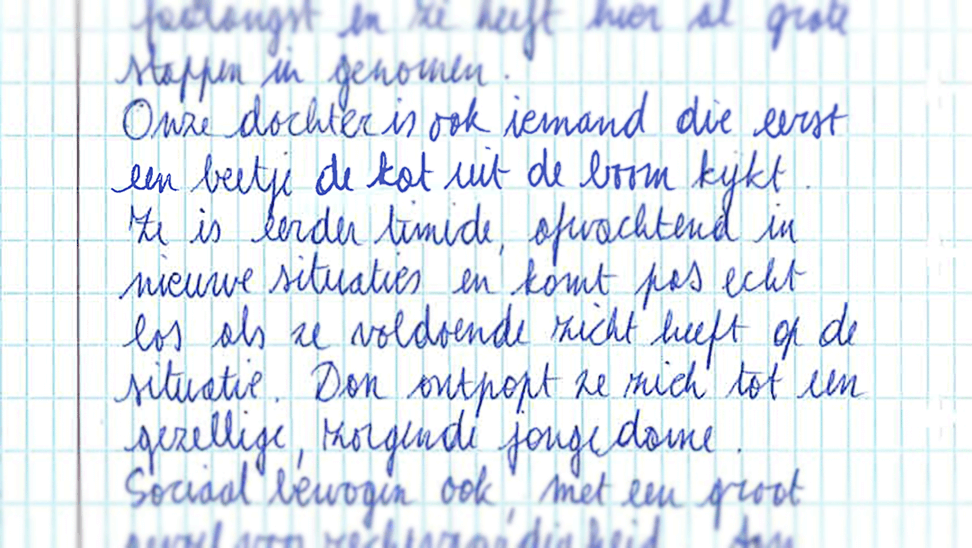 en ze heeft hier al grote
stappen in genomen.
Onze dochter is ook iemand die eerst
een beetje de kat uit de boom kijkt.
Ze is eerder timide, afwachtend in
nieuwe situaties en komt pas echt
los als ze voldoende zicht heeft op de
situatie. Dan ontpopt ze zich tot een
gezellige, zorgende jonge dame.
Sociaal bewogen ook, met een groot
gevoel voor rechtvaardigheid. Aan